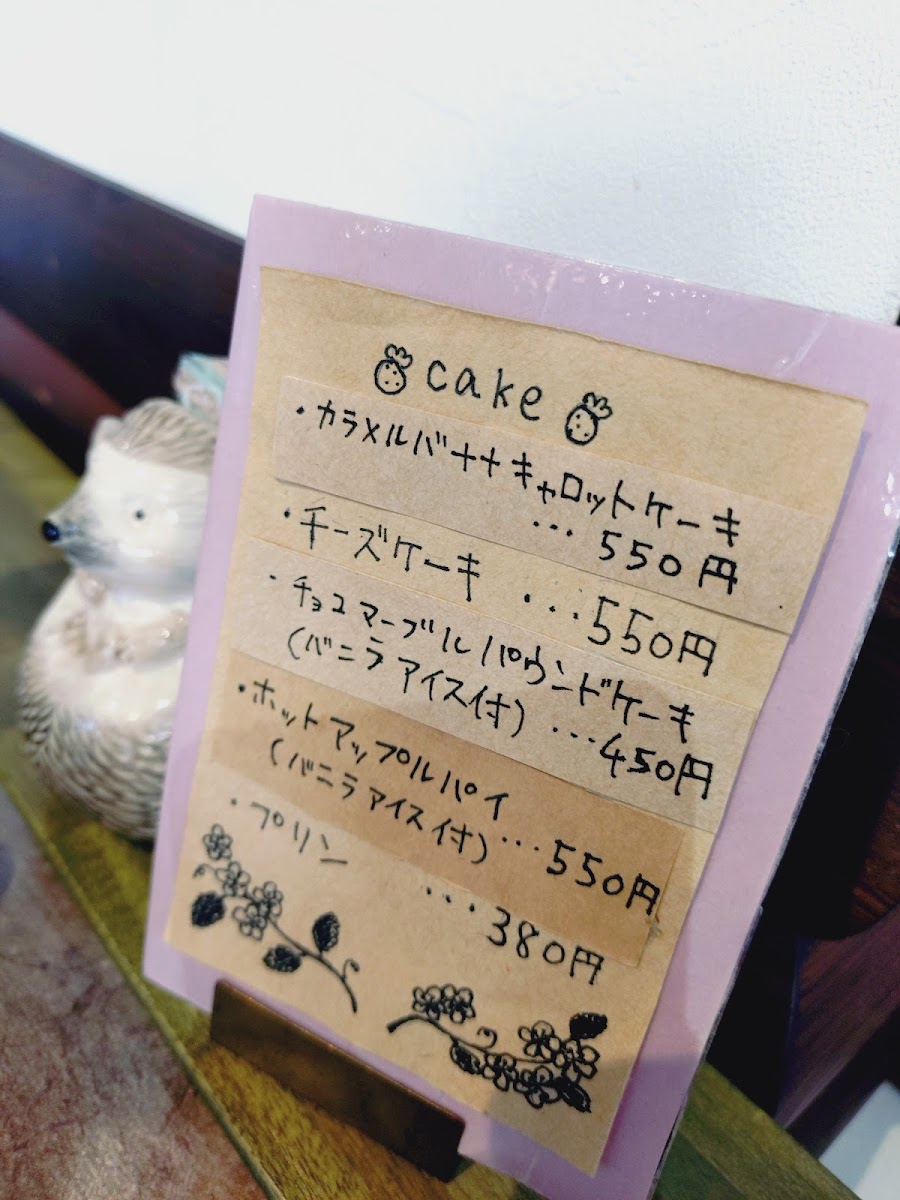 cake
・カラメルバナナキャロットケーキ
… 550円
・チーズケーキ …550円
・チョコマーブルパウンドケーキ
(バニラアイス付) …450円
・ホットアップルパイ
(バニラアイス付) …550円
・プリン
… 380円